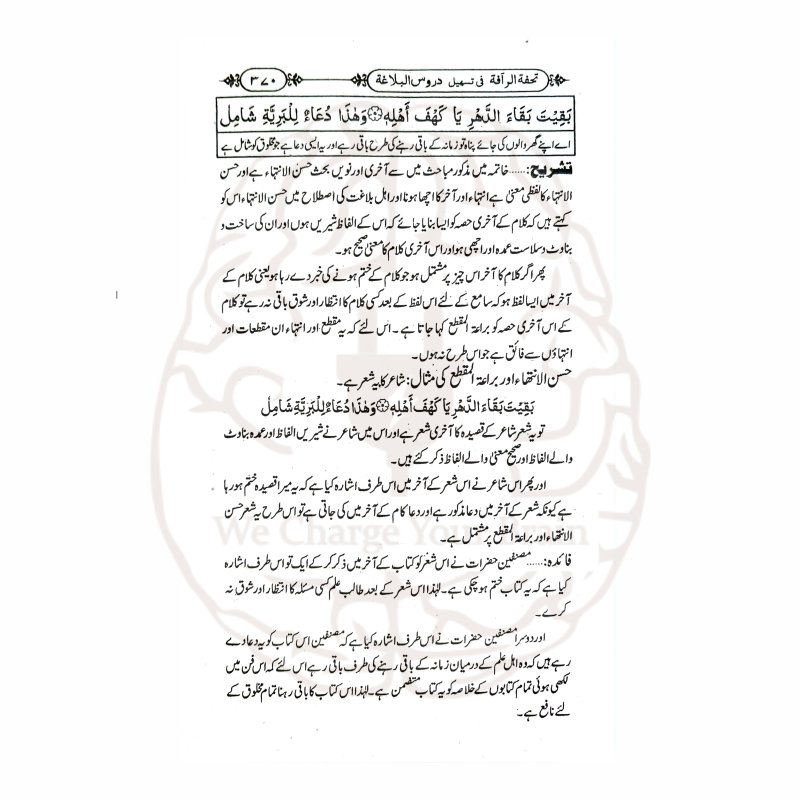 تحفۃ الرآفۃ فی تسہیل دروس البلاغۃ
۳۷۰
بَقِيْتَ بَقَاءَ الدَّهْرِ يَا كَهْفَ أَهْلِهٖ وَهٰذَا دُعَاءٌ لِلْبَرِيَّةِ شَامِلُ
اے اپنے گھر والوں کی جائے پناہ تو زمانہ کے باقی رہنے کی طرح باقی رہے اور یہ ایسی دعا ہے جو مخلوق کو شامل ہے
تشریح:......خاتمہ میں مذکور مباحث میں سے آخری اور نویں بحث حسن الانتہاء ہے اور حسن
الانتہاء کا لفظی معنیٰ ہے انتہاء اور آخر کا اچھا ہونا اور اہل بلاغت کی اصطلاح میں حسن الانتہاء اس کو
کہتے ہیں کہ کلام کے آخری حصہ کو ایسا بنایا جائے کہ اس کے الفاظ شیریں ہوں اور ان کی ساخت و
بناوٹ و سلاست عمدہ اور اچھی ہو اور اس آخری کلام کا معنیٰ صحیح ہو۔
پھر اگر کلام کا آخر اس چیز پر مشتمل ہو جو کلام کے ختم ہونے کی خبر دے رہا ہو یعنی کلام کے
آخر میں ایسا لفظ ہو کہ سامع کے لئے اس لفظ کے بعد کسی کلام کا انتظار اور شوق باقی نہ رہے تو کلام
کے اس آخری حصہ کو براعۃ المقطع کہا جاتا ہے۔ اس لئے کہ یہ مقطع اور انتہاء ان مقطعات اور
انتہاؤں سے فائق ہے جو اس طرح نہ ہوں۔
حسن الانتہاء اور براعۃ المقطع کی مثال: شاعر کا یہ شعر ہے۔
بَقِيْتَ بَقَاءَ الدَّهْرِ يَا كَهْفَ أَهْلِهٖ وَهٰذَا دُعَاءٌ لِلْبَرِيَّةِ شَامِلُ
تو یہ شعر شاعر کے قصیدہ کا آخری شعر ہے اور اس میں شاعر نے شیریں الفاظ اور عمدہ بناوٹ
والے الفاظ اور صحیح معنیٰ والے الفاظ ذکر کئے ہیں۔
اور پھر اس شاعر نے اس شعر کے آخر میں اس طرف اشارہ کیا ہے کہ یہ میرا قصیدہ ختم ہو رہا
ہے کیونکہ شعر کے آخر میں دعا مذکور ہے اور دعا کام کے آخر میں کی جاتی ہے تو اس طرح یہ شعر حسن
الانتھاء اور براعۃ المقطع پر مشتمل ہے۔
We Charge Your Brain
فائدہ:......مصنفین حضرات نے اس شعر کو کتاب کے آخر میں ذکر کر کے ایک تو اس طرف اشارہ
کیا ہے کہ یہ کتاب ختم ہو چکی ہے۔ لہٰذا اس شعر کے بعد طالب علم کسی مسئلہ کا انتظار اور شوق نہ
کرے۔
اور دوسرا مصنفین حضرات نے اس طرف اشارہ کیا ہے کہ مصنفین اس کتاب کو یہ دعا دے
رہے ہیں کہ وہ اہل علم کے درمیان زمانہ کے باقی رہنے کی طرف باقی رہے اس لئے کہ اس فن میں
لکھی ہوئی تمام کتابوں کے خلاصہ کو یہ کتاب متضمن ہے۔ لہٰذا اس کتاب کا باقی رہنا تمام مخلوق کے
لئے نافع ہے۔